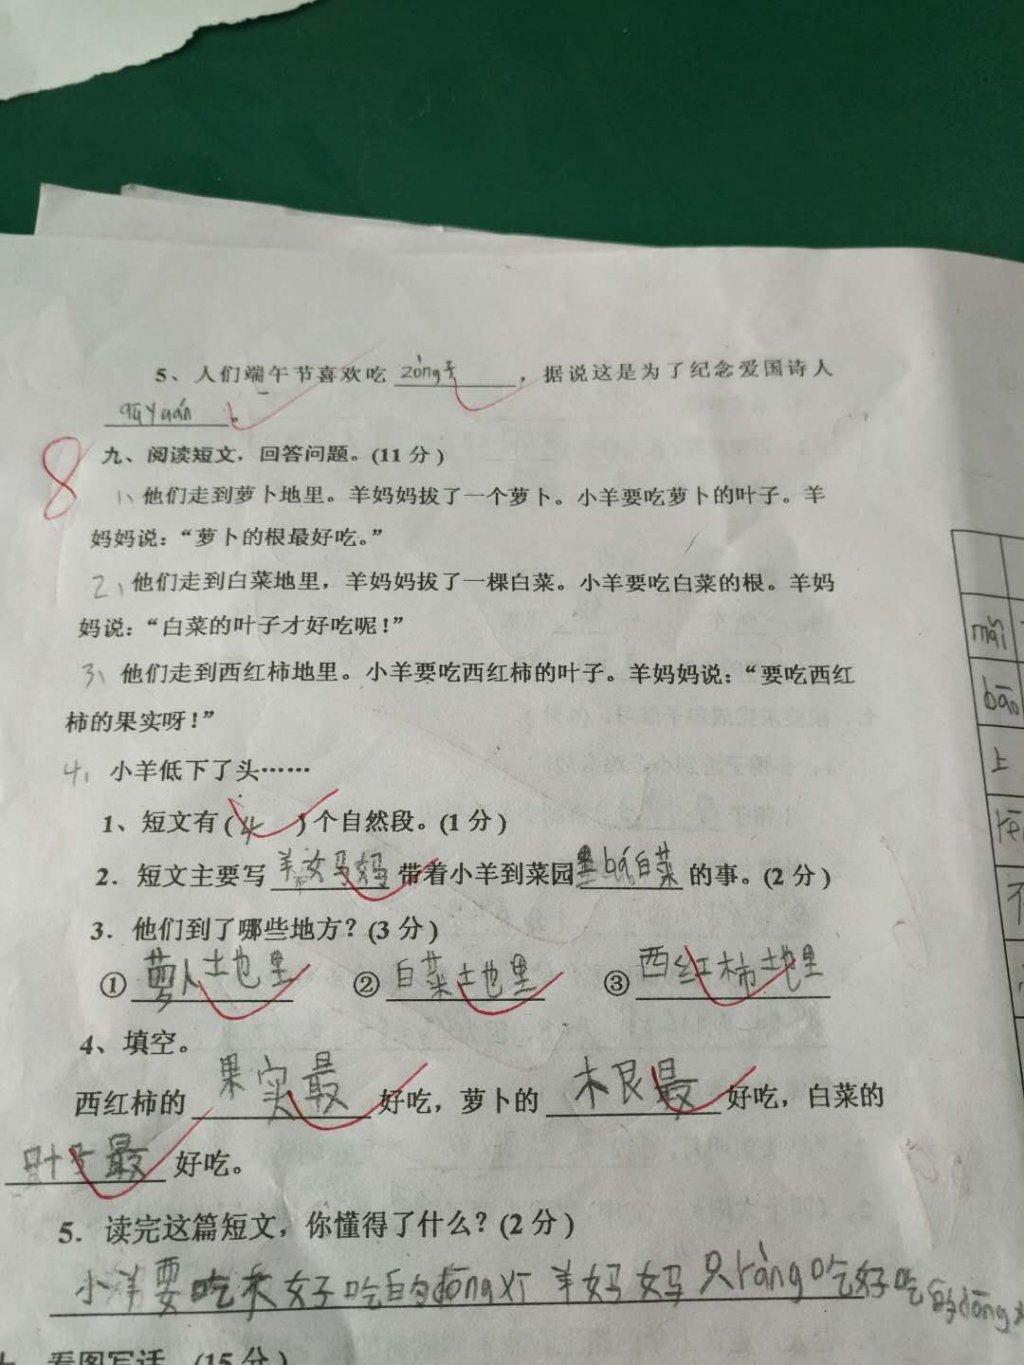 5、人们端午节喜欢吃 zòng子 ，据说这是为了纪念爱国诗人
qūyuán 。
8
九、阅读短文，回答问题。(11 分)
1、他们走到萝卜地里。羊妈妈拔了一个萝卜。小羊要吃萝卜的叶子。羊
妈妈说：“萝卜的根最好吃。”
2、他们走到白菜地里，羊妈妈拔了一棵白菜。小羊要吃白菜的根。羊妈
妈说：“白菜的叶子才好吃呢！”
3、他们走到西红柿地里。小羊要吃西红柿的叶子。羊妈妈说：“要吃西红
柿的果实呀！”
4、小羊低下了头……
1、短文有( 4 )个自然段。(1 分)
2．短文主要写 羊妈妈 带着小羊到菜园里bá白菜 的事。(2 分)
3．他们到了哪些地方？(3 分)
① 萝卜土地里 ② 白菜土地里 ③ 西红柿地里
4、填空。
西红柿的 果实最 好吃，萝卜的 根最 好吃，白菜的
叶子最 好吃。
5．读完这篇短文，你懂得了什么？(2 分)
小羊要吃不好吃的dōng西 羊妈妈只ràng吃好吃的dōng
看图写话。(15 分)
mǎi
bāo
上